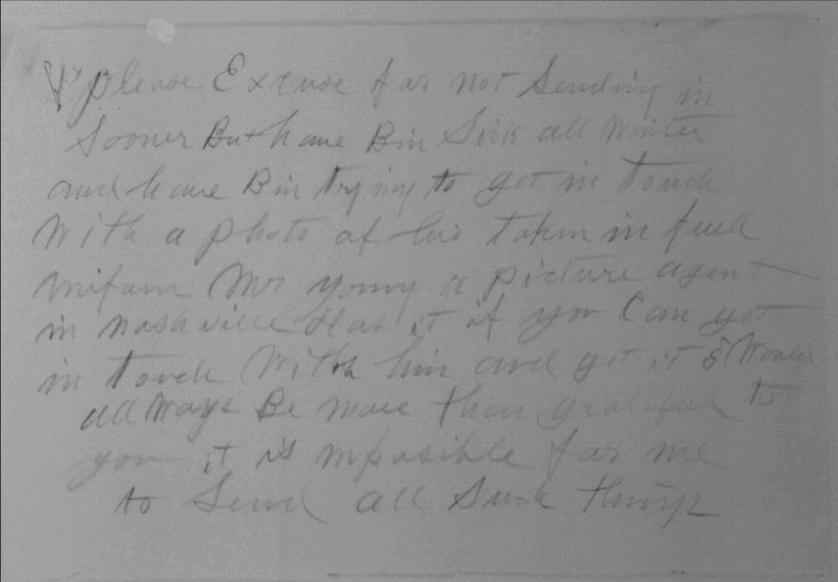 please Excuse far not Sending in
Sooner But have Bin Sick all Winter
and have Bin trying to get in touch
With a photo of his taken in full
unifarm Mr young a picture agent
in nashville Has it if you Can get
in touch With him and get it I Would
all Ways Be more than grateful to
you it is mpossible far me
to Send all Such things